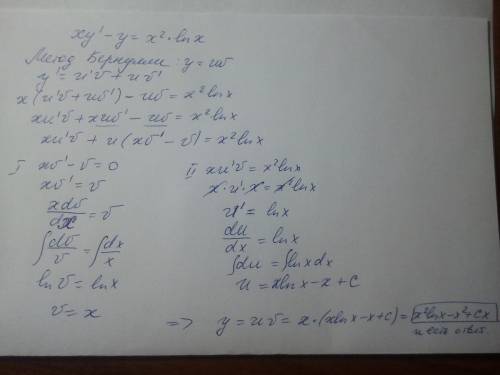 xy' - y = x² · ln x
Метод Бернулли: y = uv
y' = u'v + uv'
x(u'v + uv') - uv = x² ln x
xu'v + xuv' - uv = x² ln x
xu'v + u(xv' - v) = x² ln x
I xv' - v = 0
xv' = v
xdv/dx = v
∫dv/v = ∫dx/x
ln v = ln x
v = x
II xu'v = x² ln x
x · u' · x = x² ln x
u' = ln x
du/dx = ln x
∫du = ∫ln x dx
u = x ln x - x + C
=> y = uv = x · (x ln x - x + C) = x² ln x - x² + Cx
и есть ответ.